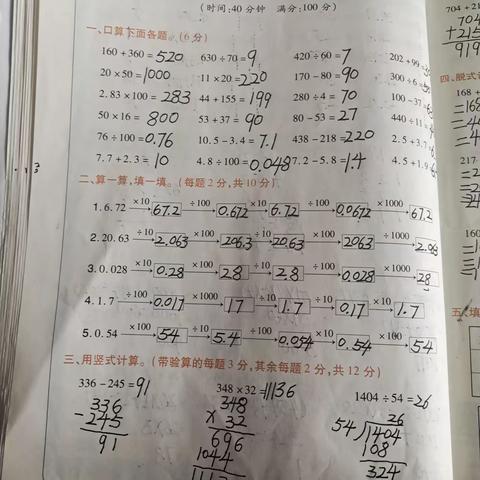 (时间:40分钟 满分:100分)
一、口算下面各题。(6分)
160+360=520 630÷70=9 420÷60=7 202+99=
20×50=1000 11×20=220 170-80=90 300÷6=
2.83×100=283 44+155=199 280÷4=70 100-37=
50×16=800 53+37=90 80-53=27 440÷11=
76÷100=0.76 10.5-3.4=7.1 438-218=220 2.5+3.
7.7+2.3=10 4.8÷100=0.048 7.2-5.8=1.4 4.5+1.9
二、算一算,填一填。(每题2分,共10分)
1. 6.72 ×10 67.2 ÷100 0.672 ×10 6.72 ÷100 0.0672 ×1000 67.2
2. 20.63 ÷10 2.063 ×100 206.3 ÷10 20.63 ×100 2063 ÷1000 2.063
3. 0.028 ×10 0.28 ×100 28 ÷10 2.8 ÷100 0.028 ×1000 28
4. 1.7 ÷100 0.017 ×1000 17 ÷10 1.7 ÷10 0.17 ×10 1.7
5. 0.54 ×100 54 ÷10 5.4 ÷100 0.054 ×10 0.54 ×100 54
三、用竖式计算。(带验算的每题3分,其余每题2分,共12分)
336-245=91 348×32=11136 1404÷54=26
336 348 26
-245 ×32 54 1404
91 696 108
1044 324
704+21
704
+215
919
四、脱式
168+
217
160
五、填